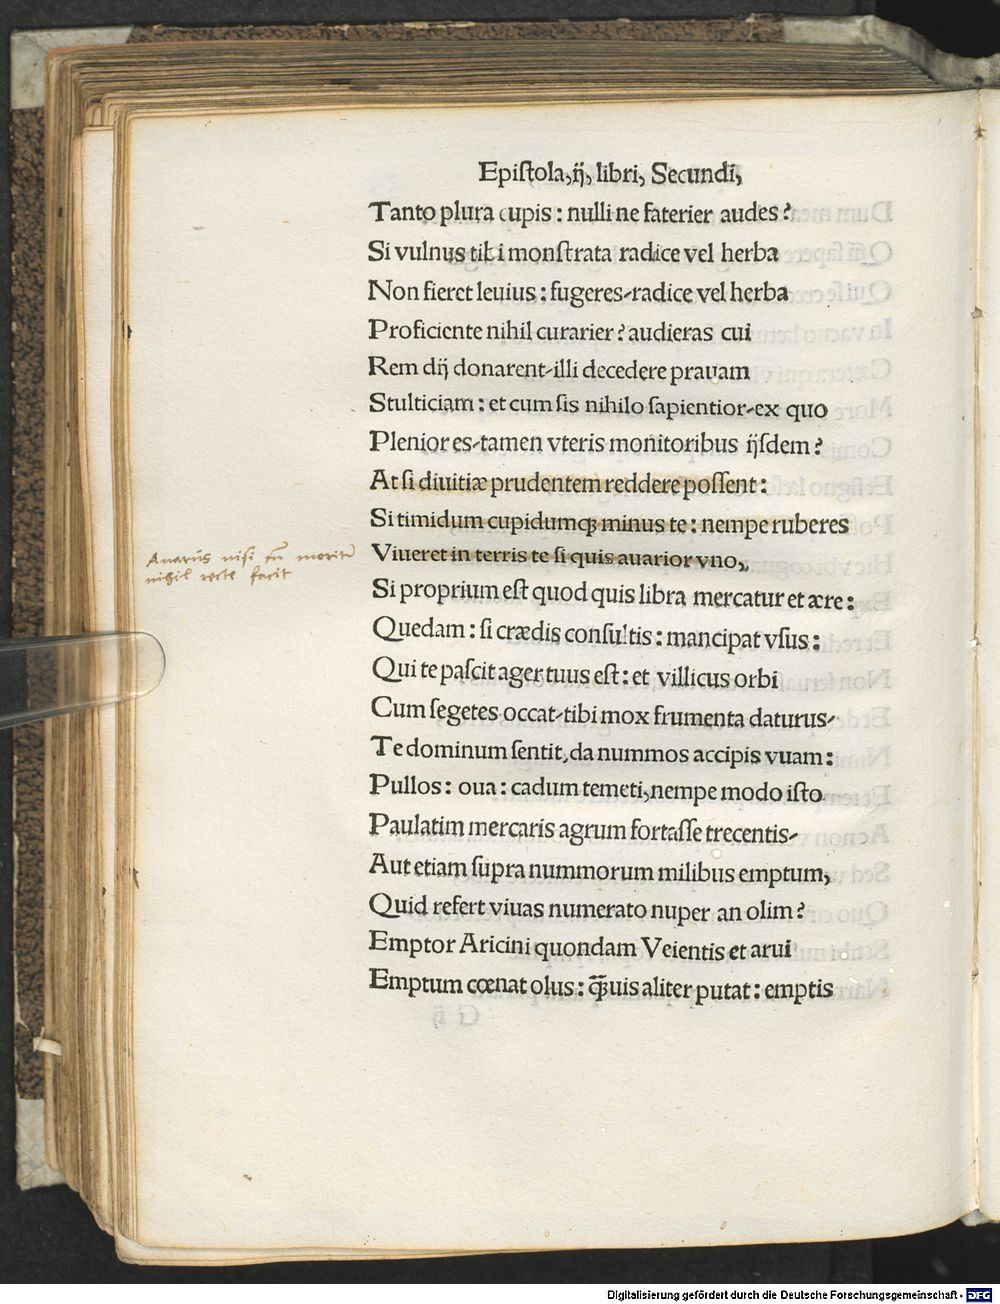 Epiſtola, ij, libri, Secundi,
Tanto plura cupis: nulli ne faterier audes?
Si vulnus tibi monſtrata radice vel herba
Non fieret leuius: fugeres-radice vel herba
Proficiente nihil curarier? audieras cui
Rem dij donarent-illi decedere prauam
Stulticiam: et cum ſis nihilo ſapientior-ex quo
Plenior es-tamen vteris monitoribus ijſdem?
At ſi diuitiæ prudentem reddere poſſent:
Si timidum cupidumqꝫ minus te: nempe ruberes
Viueret in terris te ſi quis auarior vno,
Auarus nisi cū moritur
nihil recte facit
Si proprium eſt quod quis libra mercatur et ære:
Quedam: ſi crædis conſultis: mancipat vſus:
Qui te paſcit ager tuus eſt: et villicus orbi
Cum ſegetes occat-tibi mox frumenta daturus-
Te dominum ſentit, da nummos accipis vuam:
Pullos: oua: cadum temeti, nempe modo iſto
Paulatim mercaris agrum fortaſſe trecentis-
Aut etiam ſupra nummorum milibus emptum,
Quid refert viuas numerato nuper an olim?
Emptor Aricini quondam Veientis et arui
Emptum cœnat olus: qꝫ̃uis aliter putat: emptis
Digitalisierung gefördert durch die Deutsche Forschungsgemeinschaft - DFG